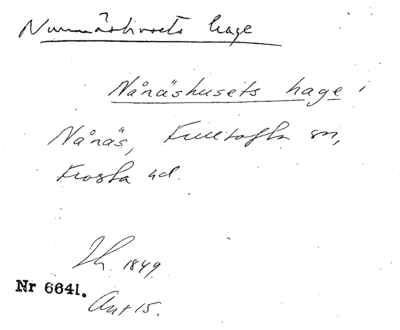 Nunnäshusets hage
Nånäshusets hage i
Nånäs, Fulltofta sn,
Frosta hd.
Th. 1849.
Nr 6641.
Ant 15.